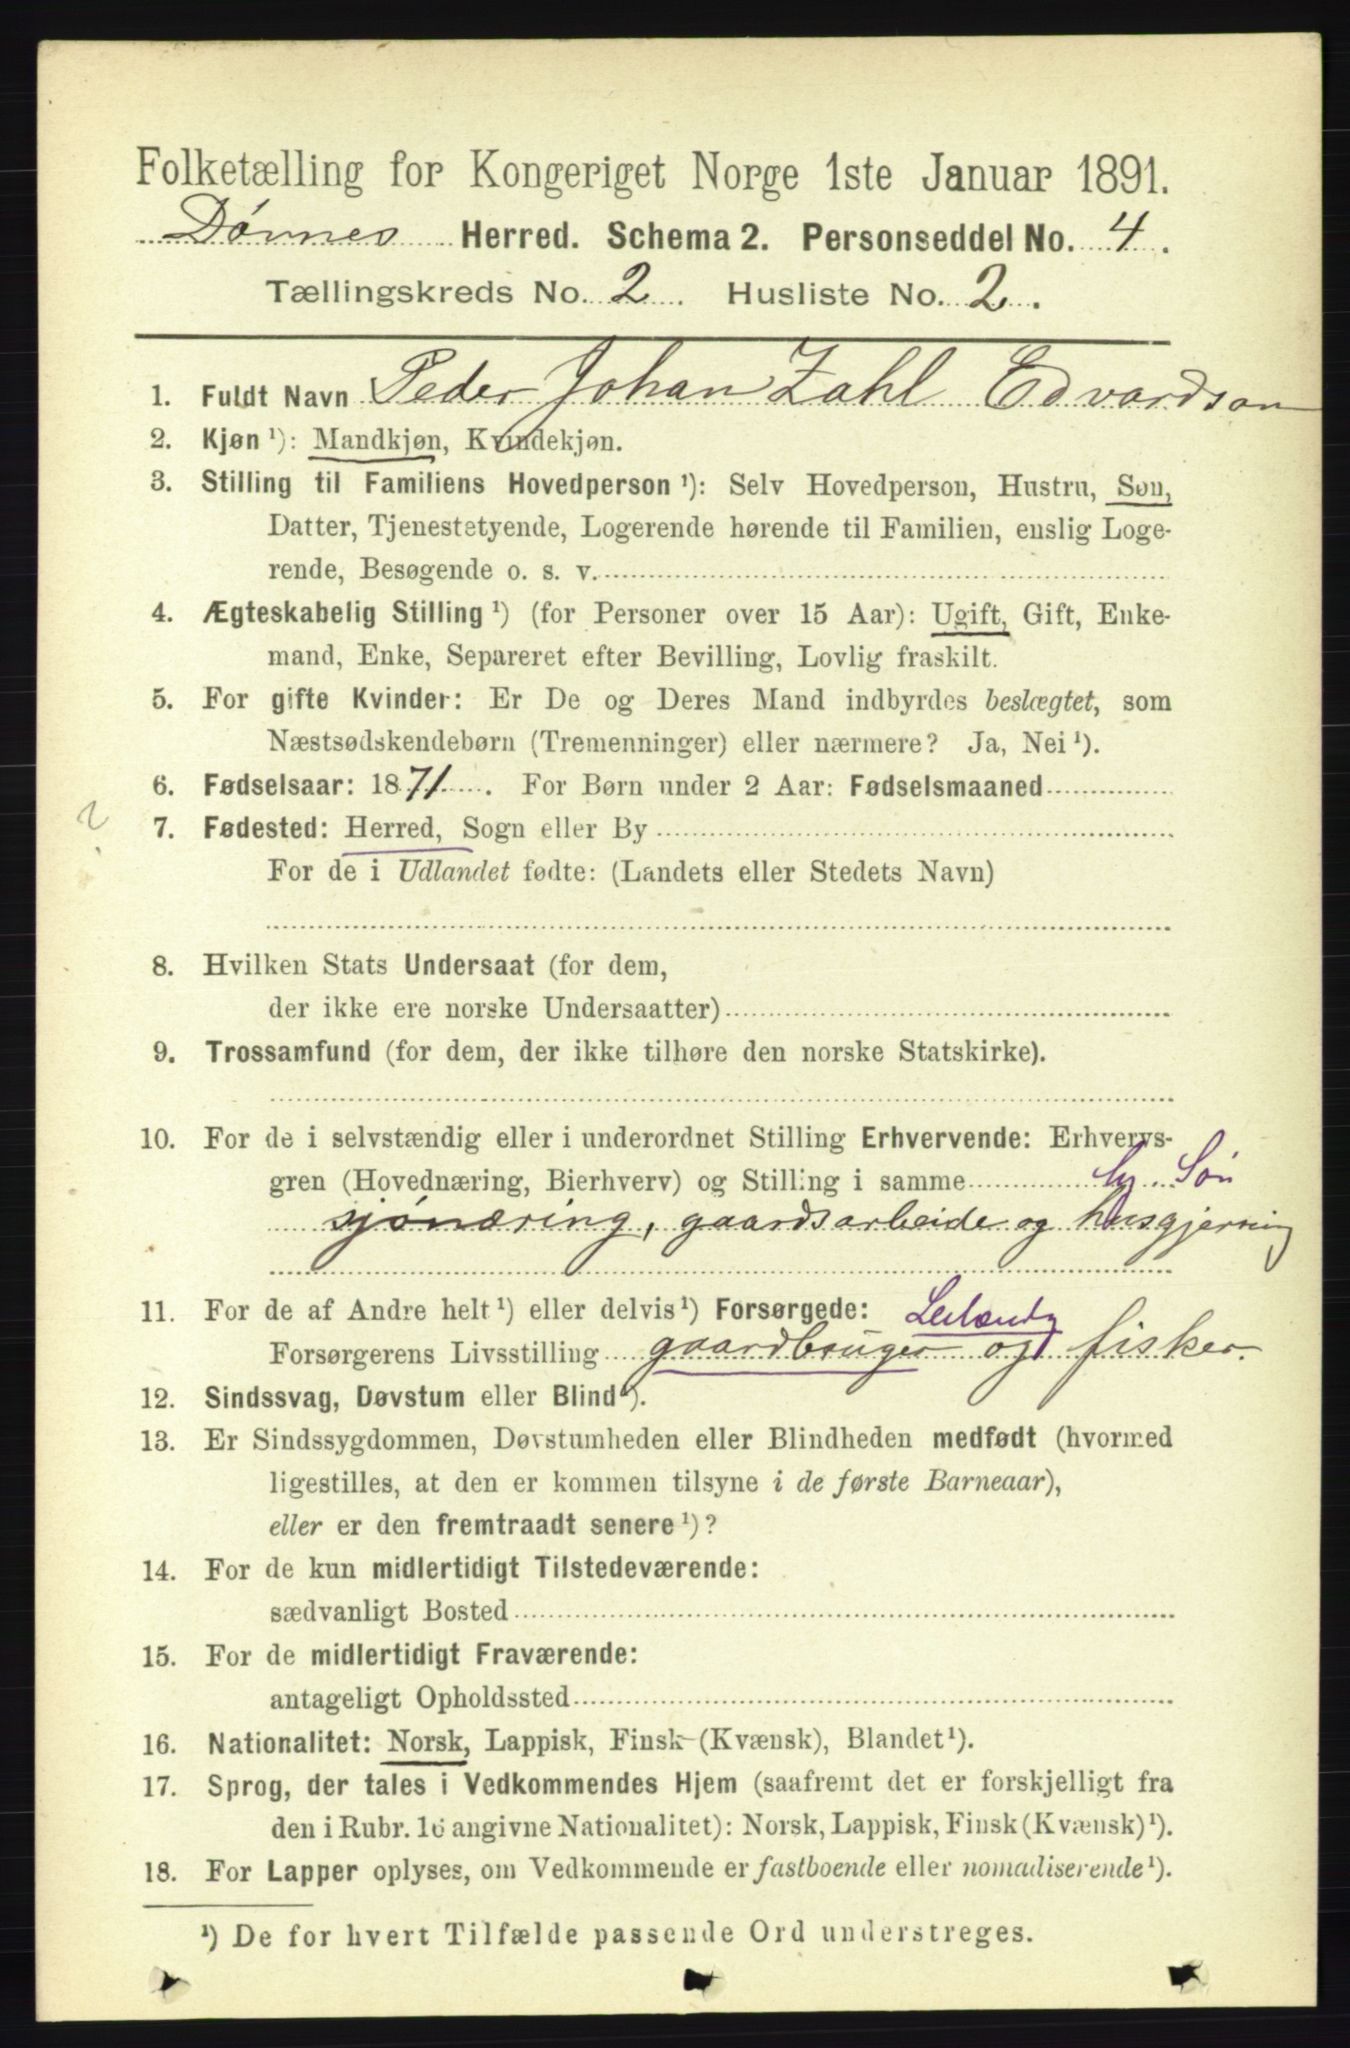 Folketælling for Kongeriget Norge 1ste Januar 1891.
Dønnes Herred. Schema 2. Personseddel No. 4.
Tællingskreds No. 2. Husliste No. 2.
1. Fuldt Navn Peder Johan Zahl Edvardson
2. Kjøn ¹): Mandkjøn, Kvindekjøn.
3. Stilling til Familiens Hovedperson ¹): Selv Hovedperson, Hustru, Søn,
Datter, Tjenestetyende, Logerende hørende til Familien, enslig Loge-
rende, Besøgende o. s. v.
4. Ægteskabelig Stilling ¹) (for Personer over 15 Aar): Ugift, Gift, Enke-
mand, Enke, Separeret efter Bevilling, Lovlig fraskilt.
5. For gifte Kvinder: Er De og Deres Mand indbyrdes beslægtet, som
Næstsødskendebørn (Tremenninger) eller nærmere? Ja, Nei ¹).
6. Fødselsaar: 1871. For Børn under 2 Aar: Fødselsmaaned
?
7. Fødested: Herred, Sogn eller By
For de i Udlandet fødte: (Landets eller Stedets Navn)
8. Hvilken Stats Undersaat (for dem,
der ikke ere norske Undersaatter)
9. Trossamfund (for dem, der ikke tilhøre den norske Statskirke).
10. For de i selvstændig eller i underordnet Stilling Erhvervende: Erhvervs-
gren (Hovednæring, Bierhverv) og Stilling i samme Søn
sjønæring, gaardsarbeide og husgjerning
11. For de af Andre helt ¹) eller delvis ¹) Forsørgede: Leilændg
Forsørgerens Livsstilling gaardbruger og fisker.
12. Sindssvag, Døvstum eller Blind ¹).
13. Er Sindssygdommen, Døvstumheden eller Blindheden medfødt (hvormed
ligestilles, at den er kommen tilsyne i de første Barneaar),
eller er den fremtraadt senere ¹)?
14. For de kun midlertidigt Tilstedeværende:
sædvanligt Bosted
15. For de midlertidigt Fraværende:
antageligt Opholdssted
16. Nationalitet: Norsk, Lappisk, Finsk (Kvænsk), Blandet ¹).
17. Sprog, der tales i Vedkommendes Hjem (saafremt det er forskjelligt fra
den i Rubr. 16 angivne Nationalitet): Norsk, Lappisk, Finsk (Kvænsk) ¹).
18. For Lapper oplyses, om Vedkommende er fastboende eller nomadiserende ¹).
¹) De for hvert Tilfælde passende Ord understreges.